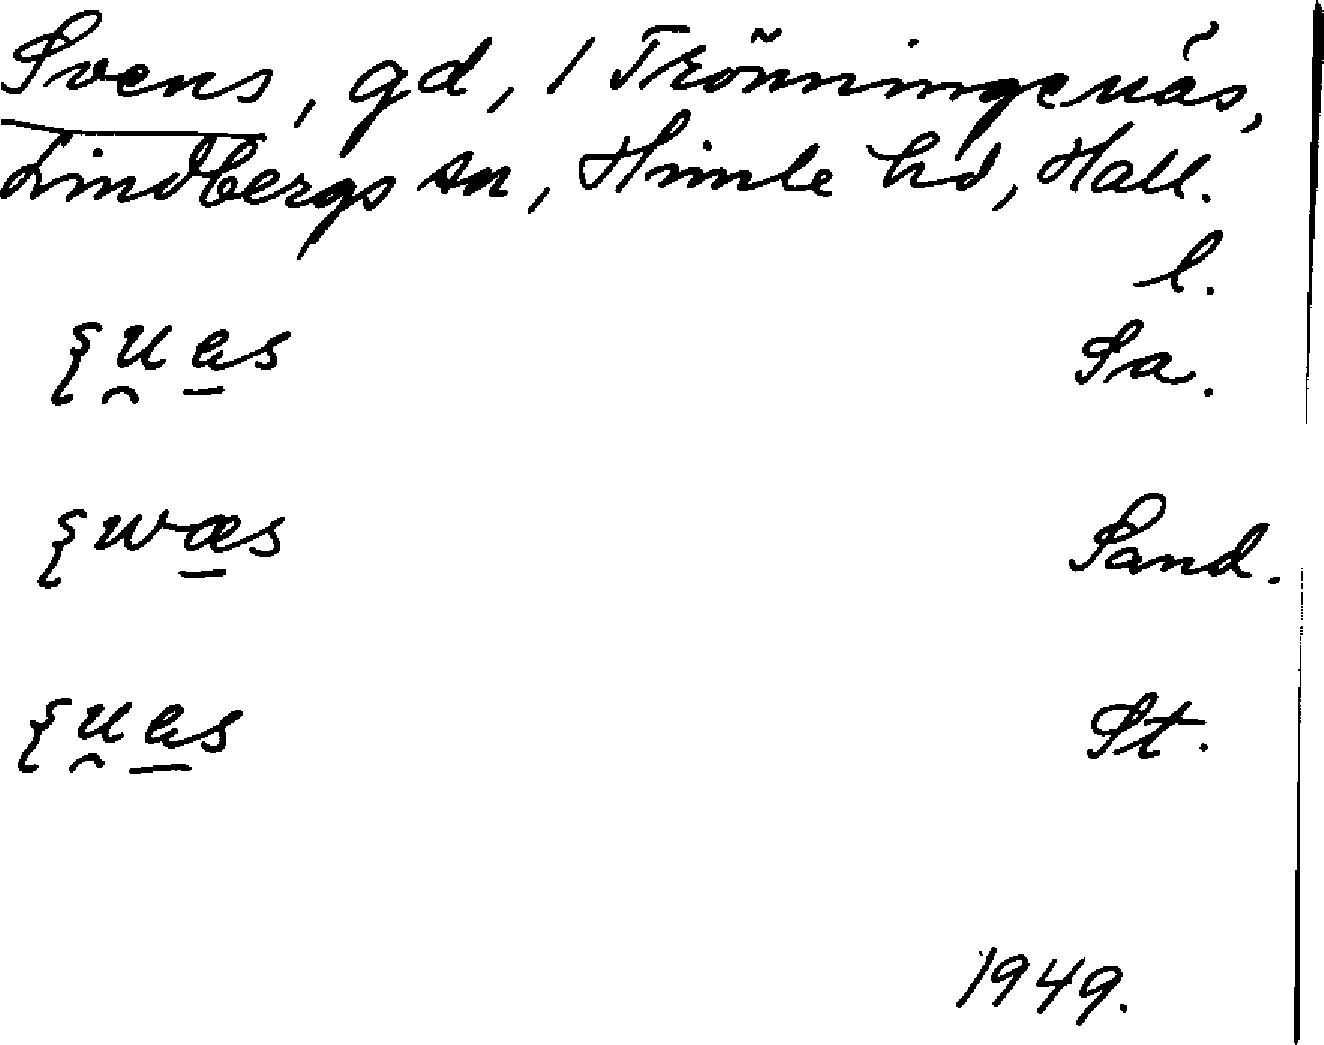 Svens, gd, 1 Trönningenäs,
Lindbergs sn, Himle hd, Hall.
l.
Sa.
Sand.
St.
1949.